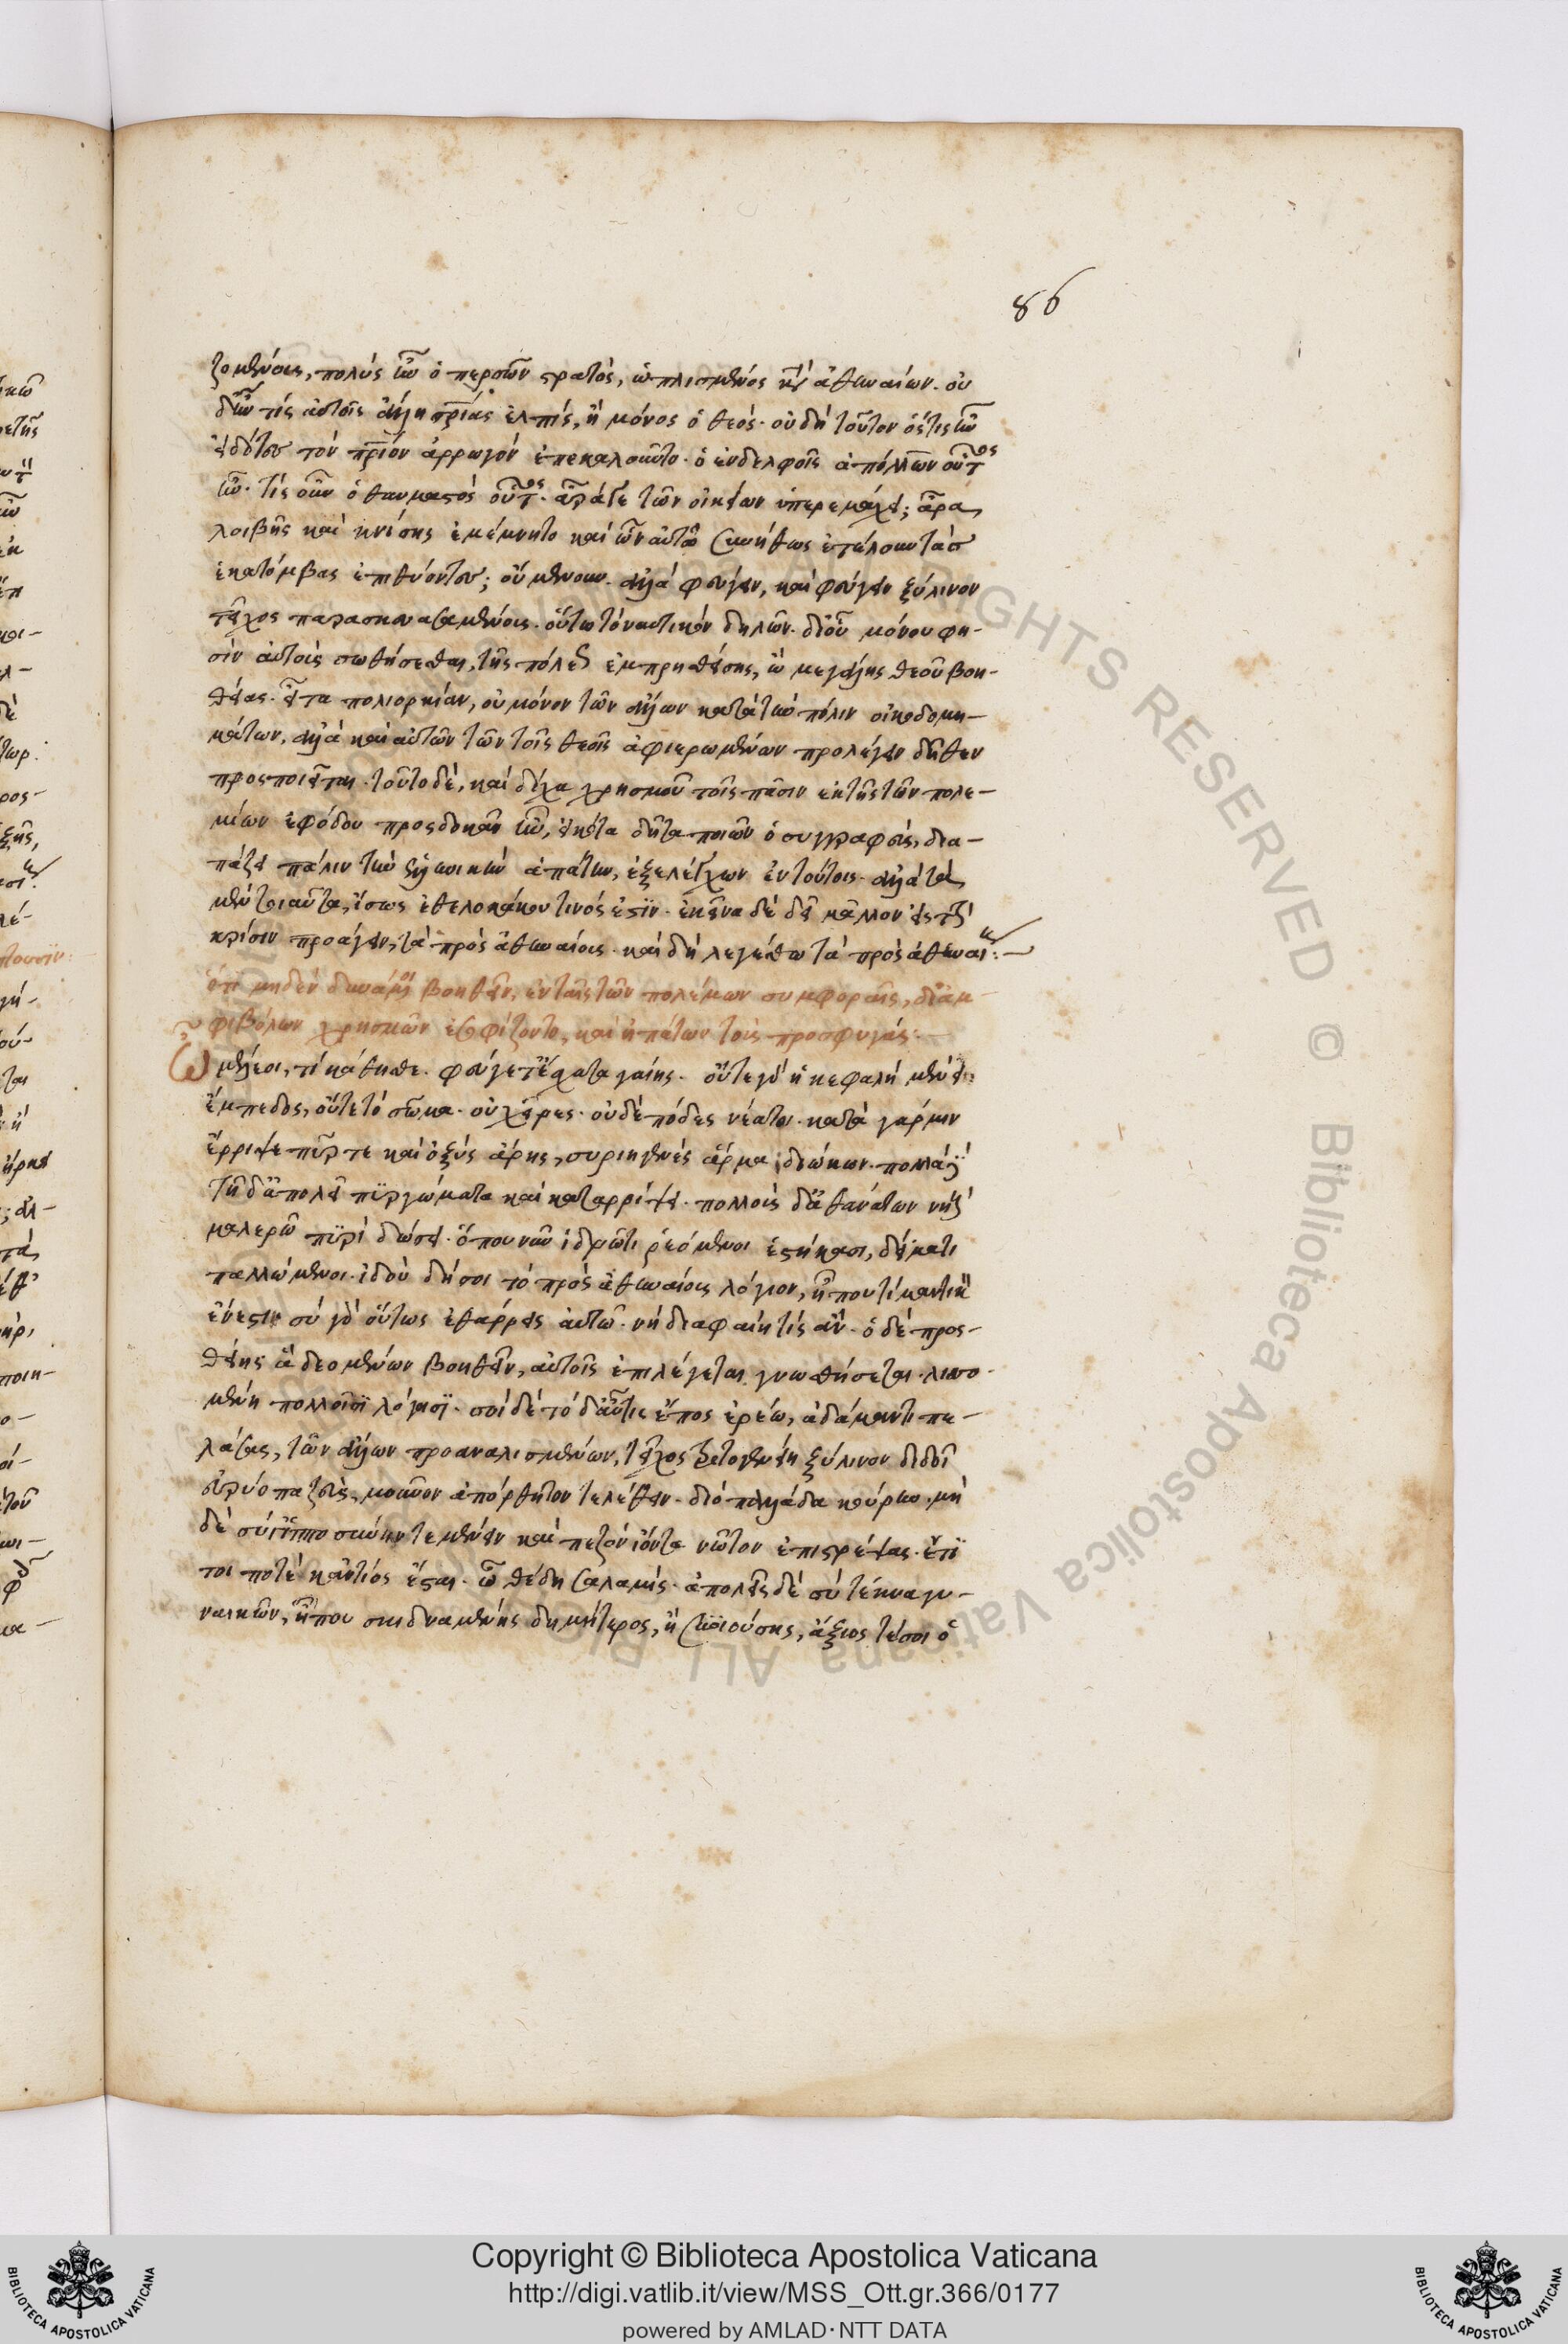 86
ζομένοις, πολὺς ἦν ὁ περσῶν στρατὸς, ὡπλισμένος κατ' ἀθηναίων. οὐ
τίς αὐτοῖς ἄλλη σωτηρίας ἐλπίς, ἢ μόνος ὁ θεός. οὐ δὴ τοῦτον ὅστις ἦν
τὸν ἀρρωγὸν ἐπεκαλοῦντο. ὁ ἐν δελφοῖς ἀπόλλων οὗτος
ἦν. τίς οὖν ὁ θαυμαστὸς οὗτος. ἆρά γε τῶν οἰκείων ὑπερεμάχει; ἆρα
λοιβῆς καὶ κνίσης ἐμέμνητο καὶ ὧν αὐτῶ συνήθως ἐτέλουν τὰσ
ἑκατόμβας ἐπιθύοντες; οὐ μενοῦν. ἀλλὰ φεύγειν, καὶ φεύγειν ξύλινον
τεῖχος παρασκευασαμένοις. οὕτω τὸ ναυτικὸν δηλῶν. δι' οὗ μόνου φη-
σὶν αὐτοὺς σωθήσεσθαι, τῆς πόλεως ἐμπρησθείσης, ὢ μεγάλης θεοῦ βοη-
θείας. εἶτα πολιορκίαν, οὐ μόνον τῶν ἄλλων κατὰ τὴν πόλιν οἰκοδομη-
μάτων, ἀλλὰ καὶ αὐτῶν τῶν τοῖς θεοῖς ἀφιερωμένων προλέγειν δῆθεν
προσποιεῖται. τοῦτο δὲ, καὶ δίχα χρησμοῦ τοῖς πᾶσιν ἐκ τῆς τῶν πολε-
μίων ἐφόδου προσδοκᾶν ἦν, εἰκότα δῆτα ποιῶν ὁ συγγραφεὺς, δια-
παίζει πάλιν τὴν ἑλληνικὴν ἀπάτην, ἐξελέγχων ἐν τούτοις. ἀλλὰ τὰ
μὲν τοιαῦτα, ἴσως ἐθελοκάκου τινός ἐστιν. ἐκεῖνα δὲ δεῖ μᾶλλον εἰς τὴν
κρίσιν προάγειν, τὰ πρὸς ἀθηναίοις. καὶ δὴ λεγέσθω τὰ πρὸς ἀθηναίους:—
ὅτι μηδὲν δυνάμενοι βοηθεῖν, ἐν ταῖς τῶν πολέμων συμφοραῖς, δι' ἀμ-
φιβόλων χρησμῶν ἐσοφίζοντο, καὶ ἠπάτων τοὺς προσφυγάς:—
Ὦ μέλεοι, τί κάθησθε. φεύγετ' ἔσχατα γαίης. οὔτε γὰρ ἡ κεφαλὴ μένει
ἔμπεδος, οὔτε τὸ σῶμα. οὐ χεῖρες. οὐδὲ πόδες νέατοι. κατὰ γάρ μιν
ἔρριψε πῦρ τε καὶ ὀξὺς ἄρης, συριηγενὲς ἅρμα διώκων. πολλὰ
δ' ἀπολεῖ πυργώματα καὶ καταρρίψει. πολλοὺς δ' ἀθανάτων
μαλερῶ πυρὶ δώσει. ὅπου νῦν ἱδρῶτι ῥεόμενοι ἑστήκασι, δείματι
παλλώμενοι. ἰδοὺ δή σοι τὸ πρὸς ἀθηναίοις λόγιον, ἦ που τί μαντικὸν
ἔνεστιν σὺ γὰρ οὕτως ἐθάρρεις αὐτῶ. νὴ δία φαίη τίς ἄν. ὁ δὲ προσ-
θεὶς δεομένων βοηθεῖν, αὐτοῖς ἐπιλέγεται γνωσθήσεται. λισσο-
μένη πολλοῖσι λόγοισι. σοὶ δὲ τόδ' αὖτις ἔπος ἐρέω, ἀδάμαντι πε-
λάσας, τῶν ἄλλων προαναλισμένων, τεῖχος τριτογενεῖ ξύλινον διδοῖ
εὐρύοπα ζεὺς, μοῦνον ἀπόρθητον τελέθειν. διὸ παλλάδα κούρην. μὴ
δὲ σύ γ' ἱπποσύνην τε μένειν καὶ πεζὸν ἰόντα νῶτον ἐπιστρέψας. ἔτι
τοι ποτὲ κἀντίος ἔσσαι. ὦ θείη σαλαμὶς. ἀπολεῖς δὲ σὺ τέκνα γυ-
ναικῶν, ἤ που σκιδναμένης δημήτερος, ἢ συνιούσης, ἄξιος τέ σοι ὁ
Copyright © Biblioteca Apostolica Vaticana
http://digi.vatlib.it/view/MSS_Ott.gr.366/0177
powered by AMLAD·NTT DATA